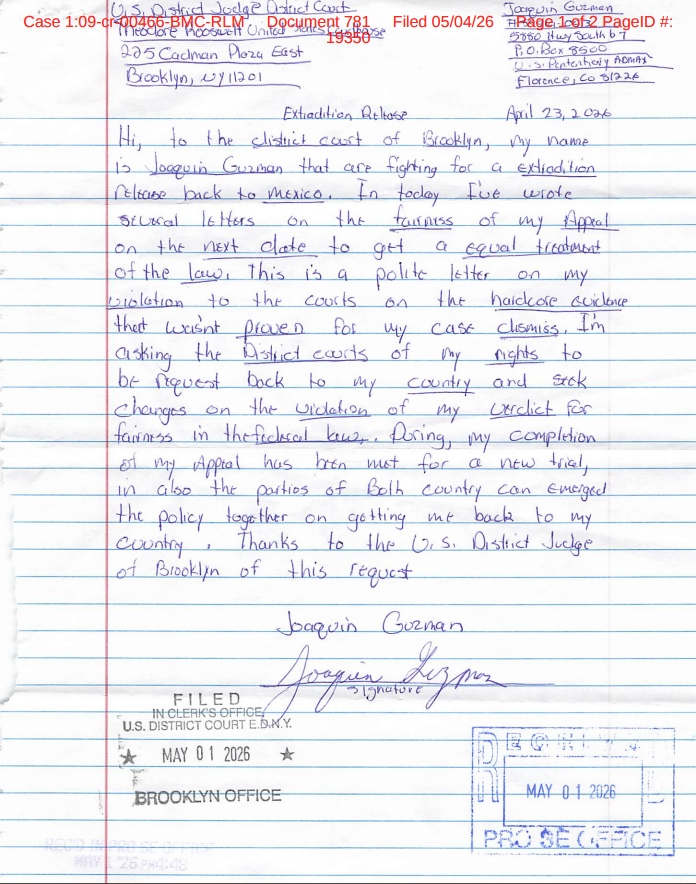 Case 1:09-cr-00466-BMC-RLM Document 781 Filed 05/04/26 Page 1 of 2 PageID #: 19350
U.S. District Judge District Court
Theodore Roosevelt United States Courthouse
225 Cadman Plaza East
Brooklyn, NY 11201
Joaquin Guzman
5880 Hwy South 67
P.O. Box 8500
U.S. Penitentiary ADMAX
Florence, Co 81226
Extradition Release
April 23, 2026
Hi, to the district court of Brooklyn, my name
is Joaquin Guzman that are fighting for a extradition
release back to mexico. In today I've wrote
several letters on the fairness of my Appeal
on the next date to get a equal treatment
of the law. This is a polite letter on my
violation to the courts on the hardcore evidence
that wasn't proven for my case dismiss. I'm
asking the District courts of my rights to
be request back to my country and seek
changes on the violation of my verdict for
fairness in the federal law. During, my completion
of my Appeal has been met for a new trial,
in also the parties of Both country can emerged
the policy together on getting me back to my
country. Thanks to the U.S. District Judge
of Brooklyn of this request
Joaquin Guzman
Joaquin Guzman
signature
FILED
IN CLERK'S OFFICE
U.S. DISTRICT COURT E.D.N.Y.
★ MAY 01 2026 ★
BROOKLYN OFFICE
MAY 01 2026
PRO SE OFFICE
REC'D IN PRO SE OFFICE
MAY 1 '26 PM4:48